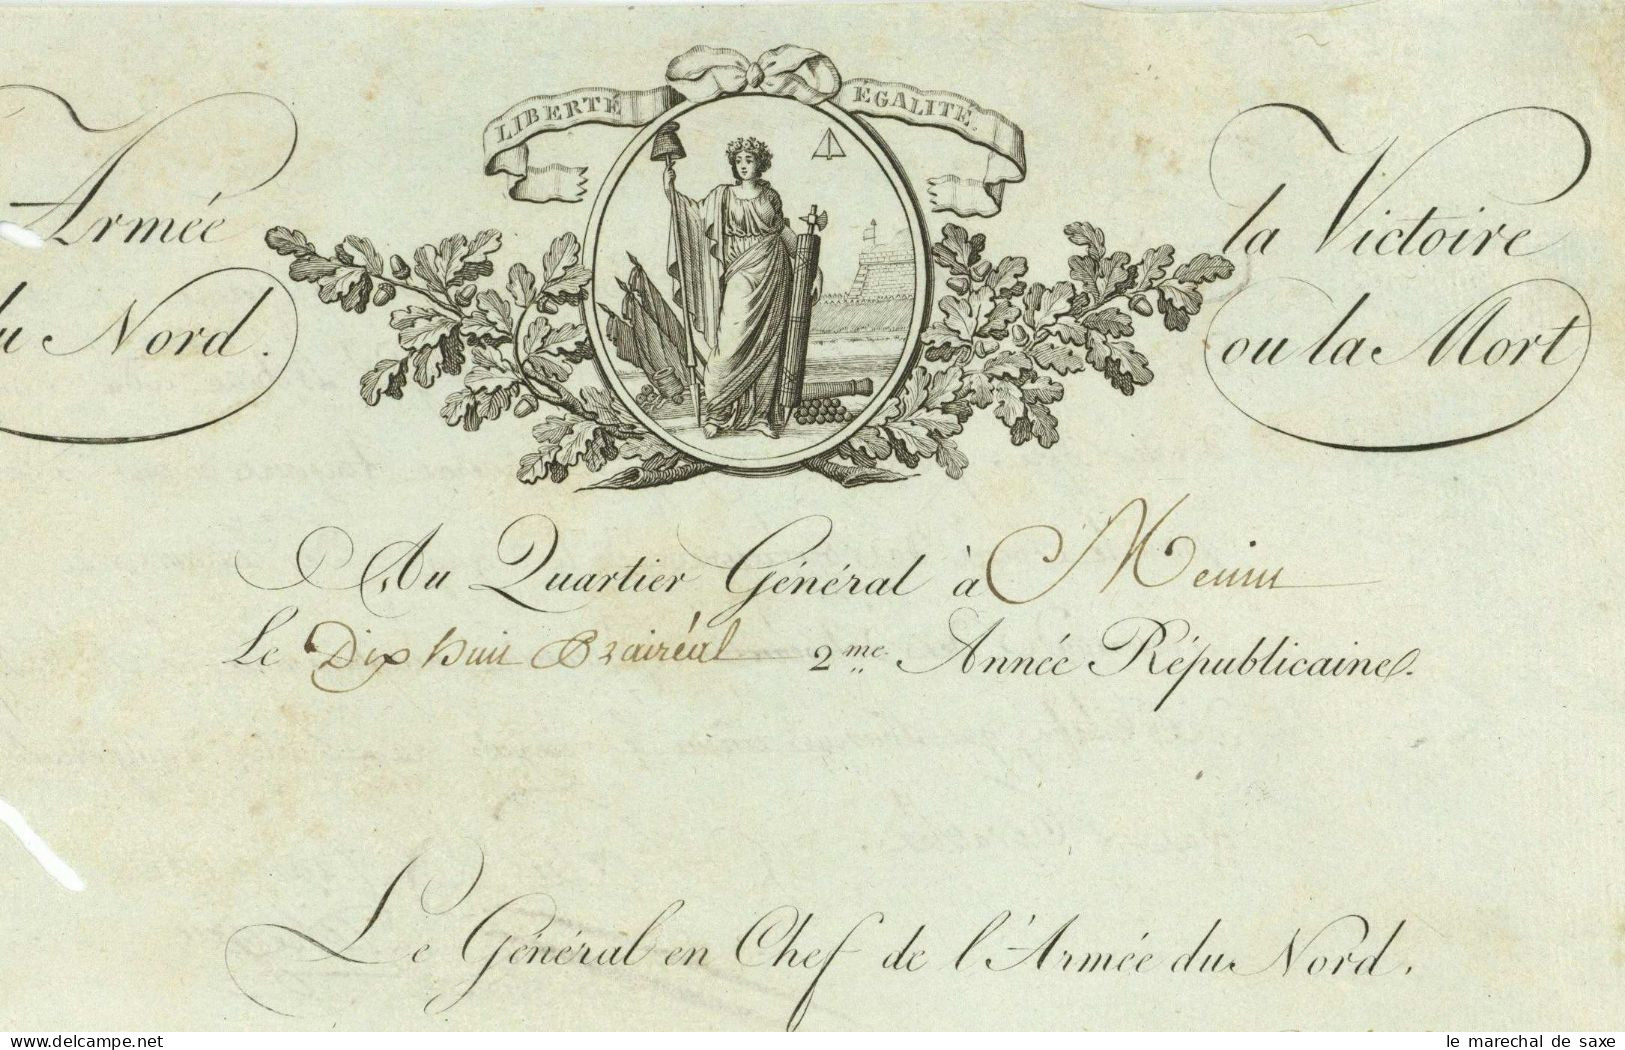 LIBERTÉ EGALITÉ.
Armée
du Nord.
la Victoire
ou la Mort
Au Quartier Général à Menin
Le Dix huit Prairéal 2me. Année Républicaine.
Le Général en Chef de l'Armée du Nord.
le marechal de saxe